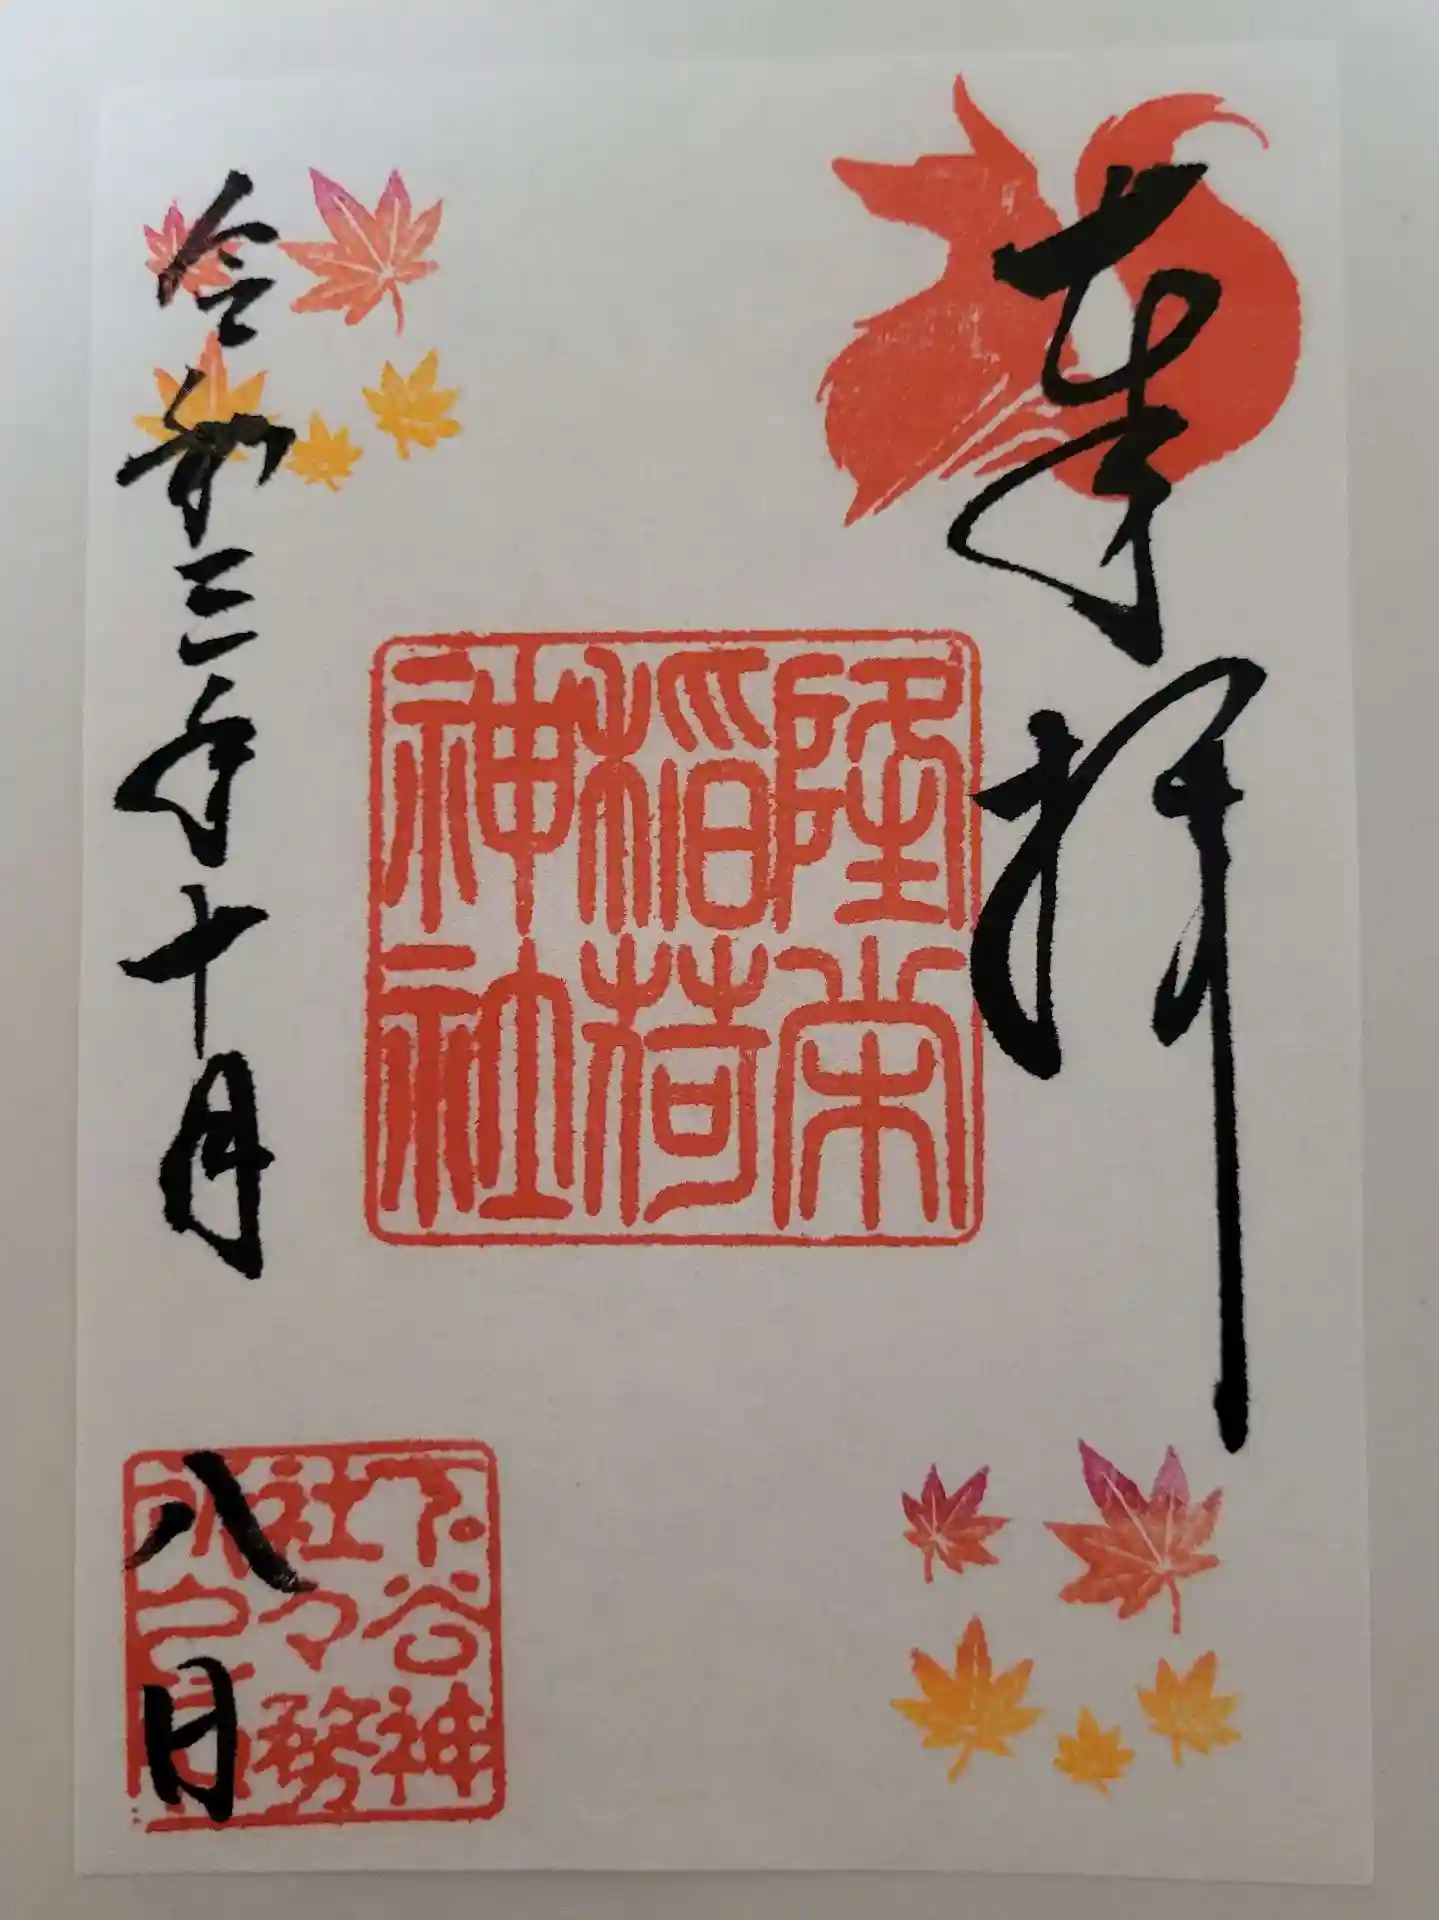 奉拝
隆栄
稲荷
神社
令和三年十月
八日
下谷神
社々務
所之印